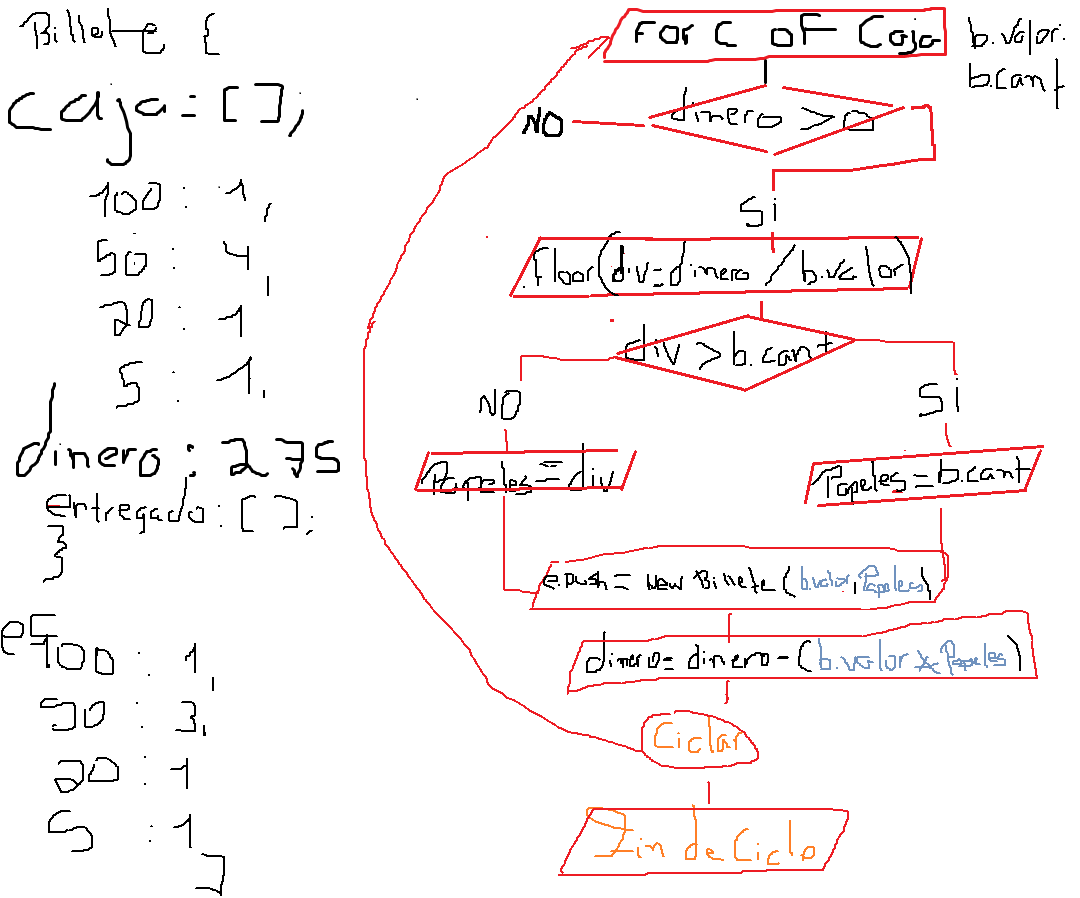 Billete {
caja = [];
100 : 1,
50 : 4,
20 : 1
5 : 1,
dinero : 275
entregado : [ ];
}
e[
100 : 1,
50 : 3,
20 : 1
5 : 1
]
For c of Caja
b.valor.
b.cant
dinero > 0
NO
Si
.Floor(div=dinero / b.valor)
div > b.cant
NO
Si
Papeles = div
Papeles = b.cant
e.push = new Billete (b.valor, Papeles)
dinero = dinero - (b.valor * Papeles)
Ciclar
Fin de Ciclo